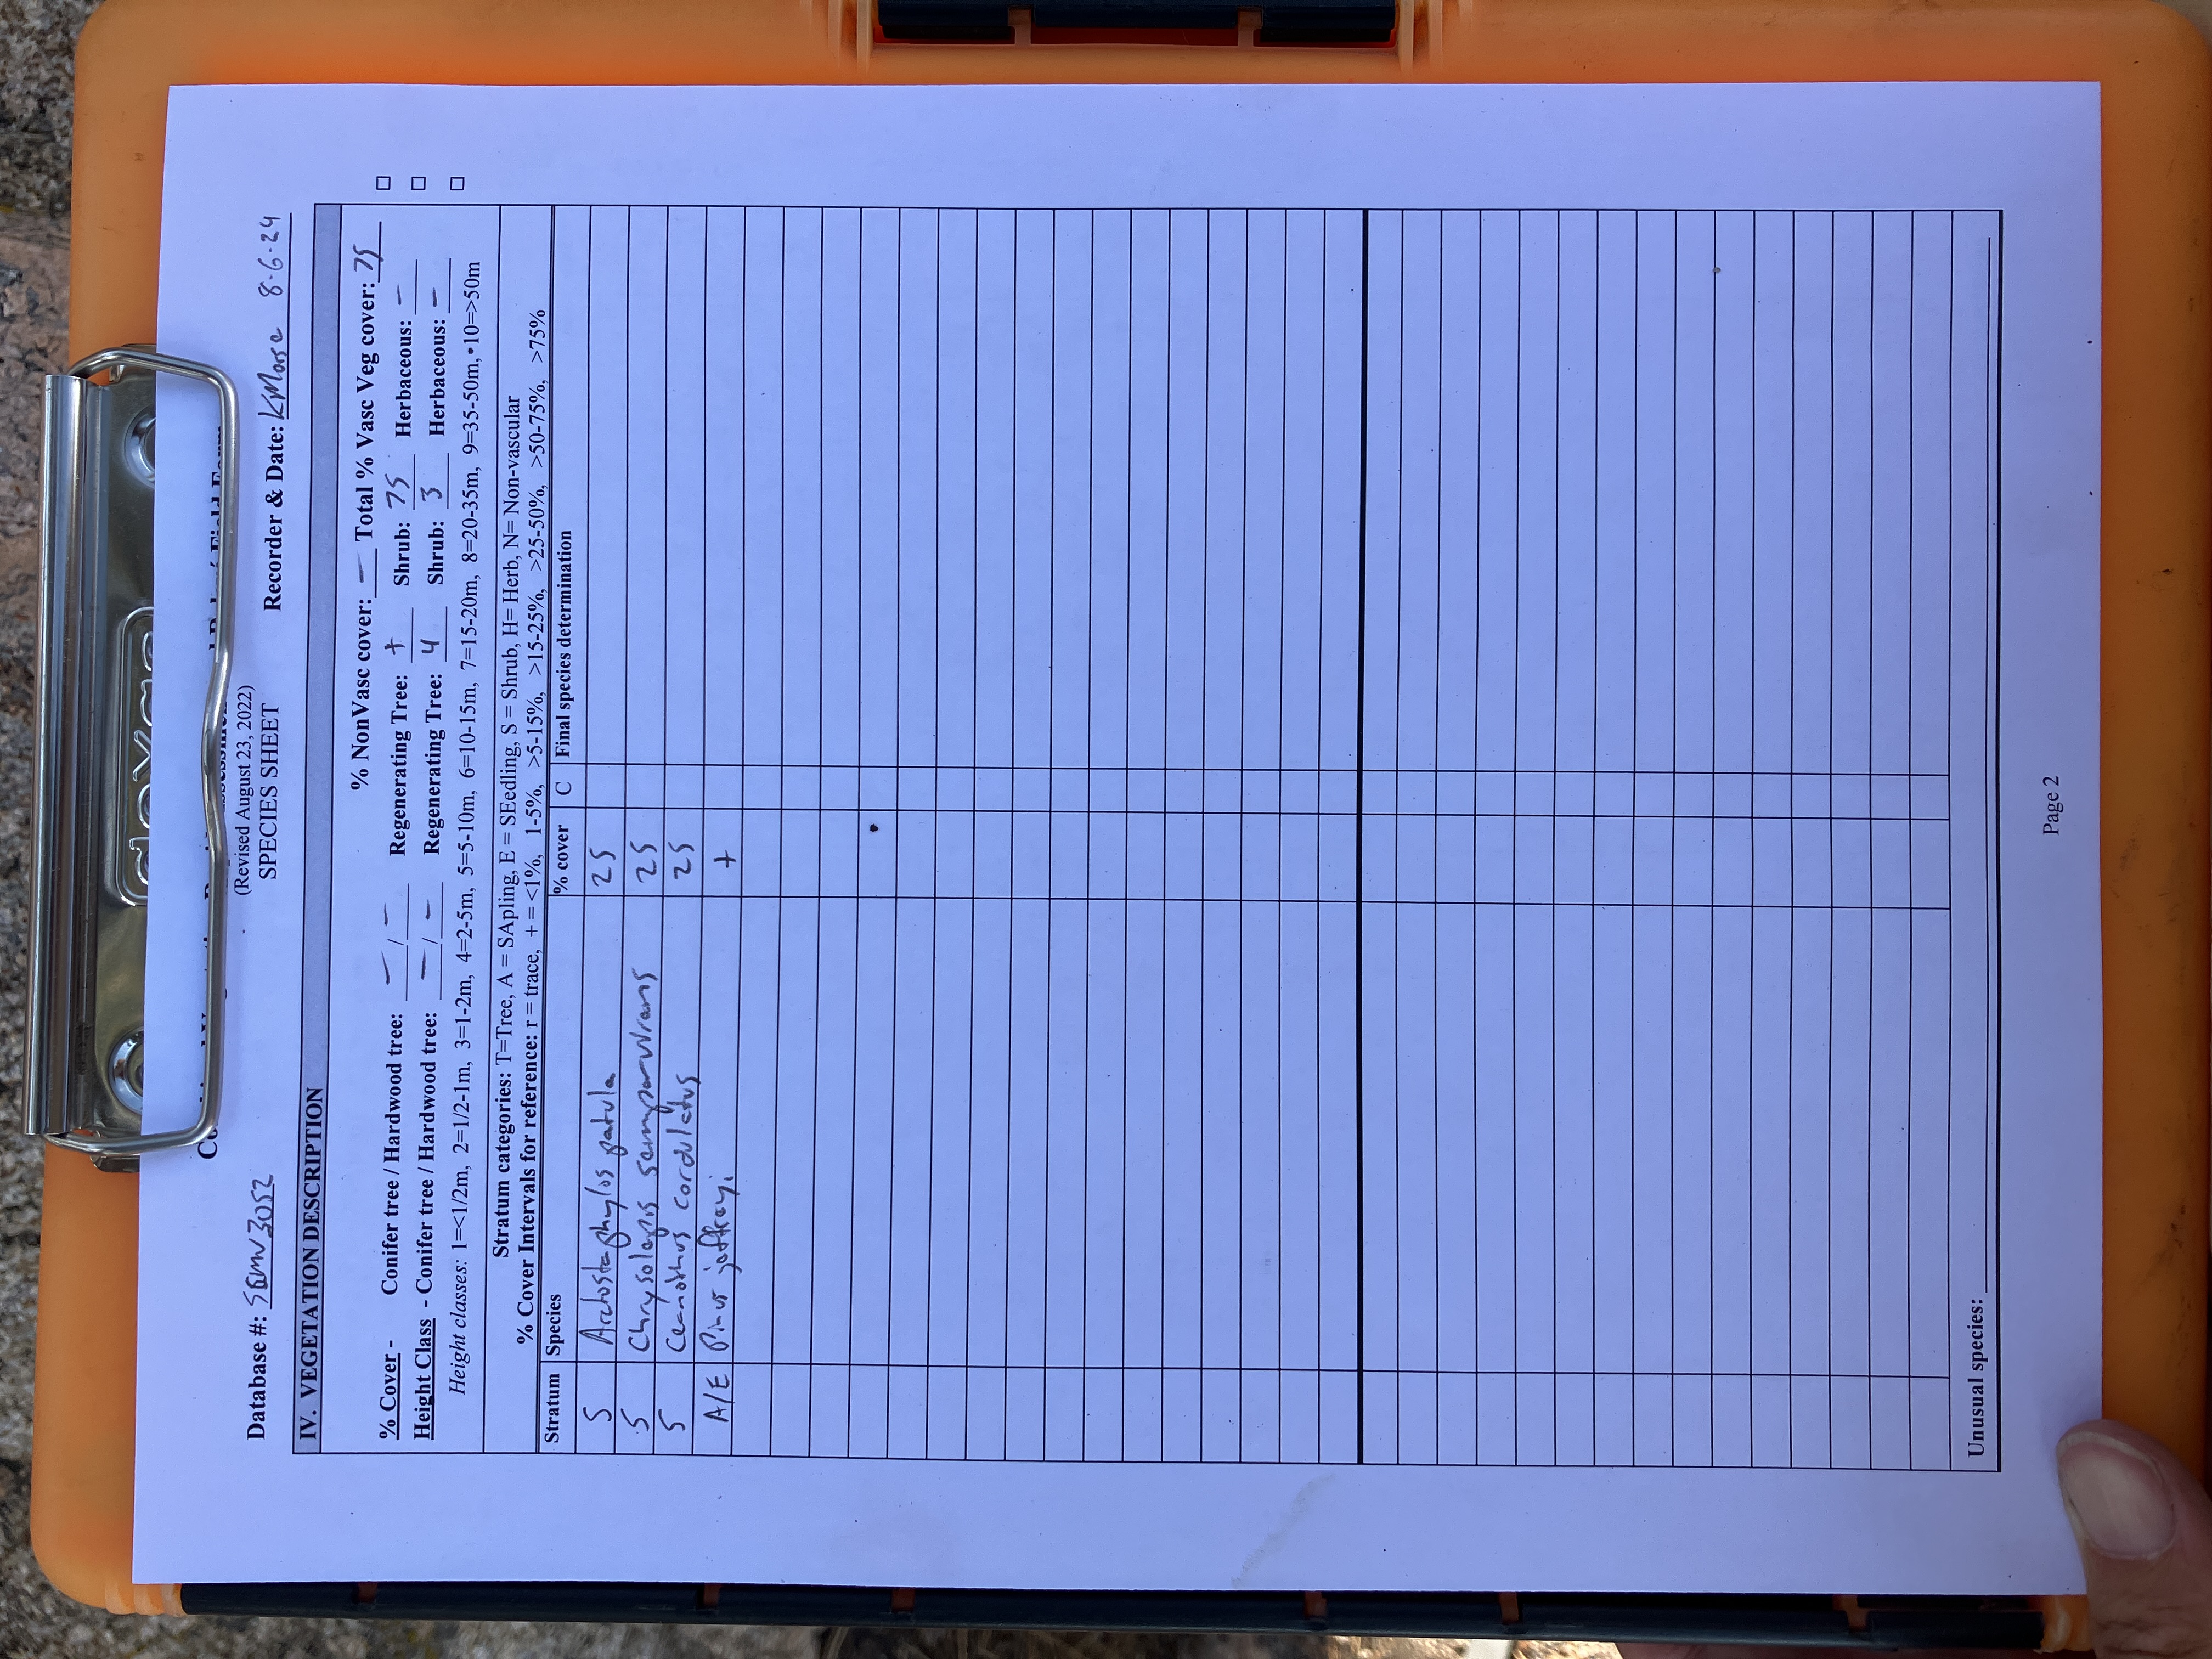 (Revised August 23, 2022)
Database #: SEMN3052 SPECIES SHEET Recorder & Date: KMorse 8-6-24
IV. VEGETATION DESCRIPTION
% NonVasc cover: — Total % Vasc Veg cover: 75
% Cover - Conifer tree / Hardwood tree: — / — Regenerating Tree: + Shrub: 75 Herbaceous: —
Height Class - Conifer tree / Hardwood tree: — / — Regenerating Tree: 4 Shrub: 3 Herbaceous: —
Height classes: 1=<1/2m, 2=1/2-1m, 3=1-2m, 4=2-5m, 5=5-10m, 6=10-15m, 7=15-20m, 8=20-35m, 9=35-50m, 10=>50m
Stratum categories: T=Tree, A = SApling, E = SEedling, S = Shrub, H= Herb, N= Non-vascular
% Cover Intervals for reference: r = trace, + = <1%, 1-5%, >5-15%, >15-25%, >25-50%, >50-75%, >75%
Stratum Species % cover C Final species determination
S Arctostaphylos patula 25
S Chrysolepis sempervirens 25
S Ceanothus cordulatus 25
A/E Pinus jeffreyi +
Unusual species:
Page 2